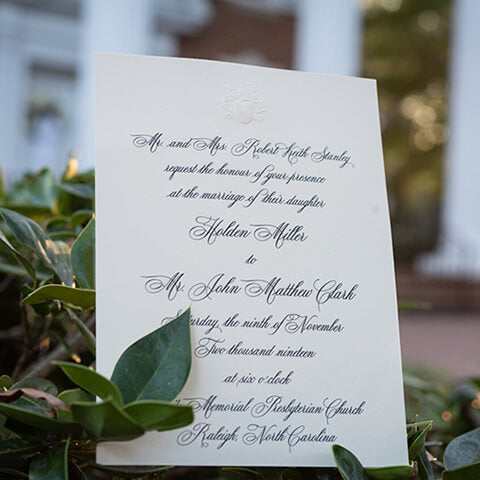 Mr. and Mrs. Robert Keith Stanley
request the honour of your presence
at the marriage of their daughter
Holden Miller
to
Mr. John Matthew Clark
Saturday, the ninth of November
Two thousand nineteen
at six o'clock
Memorial Presbyterian Church
Raleigh, North Carolina